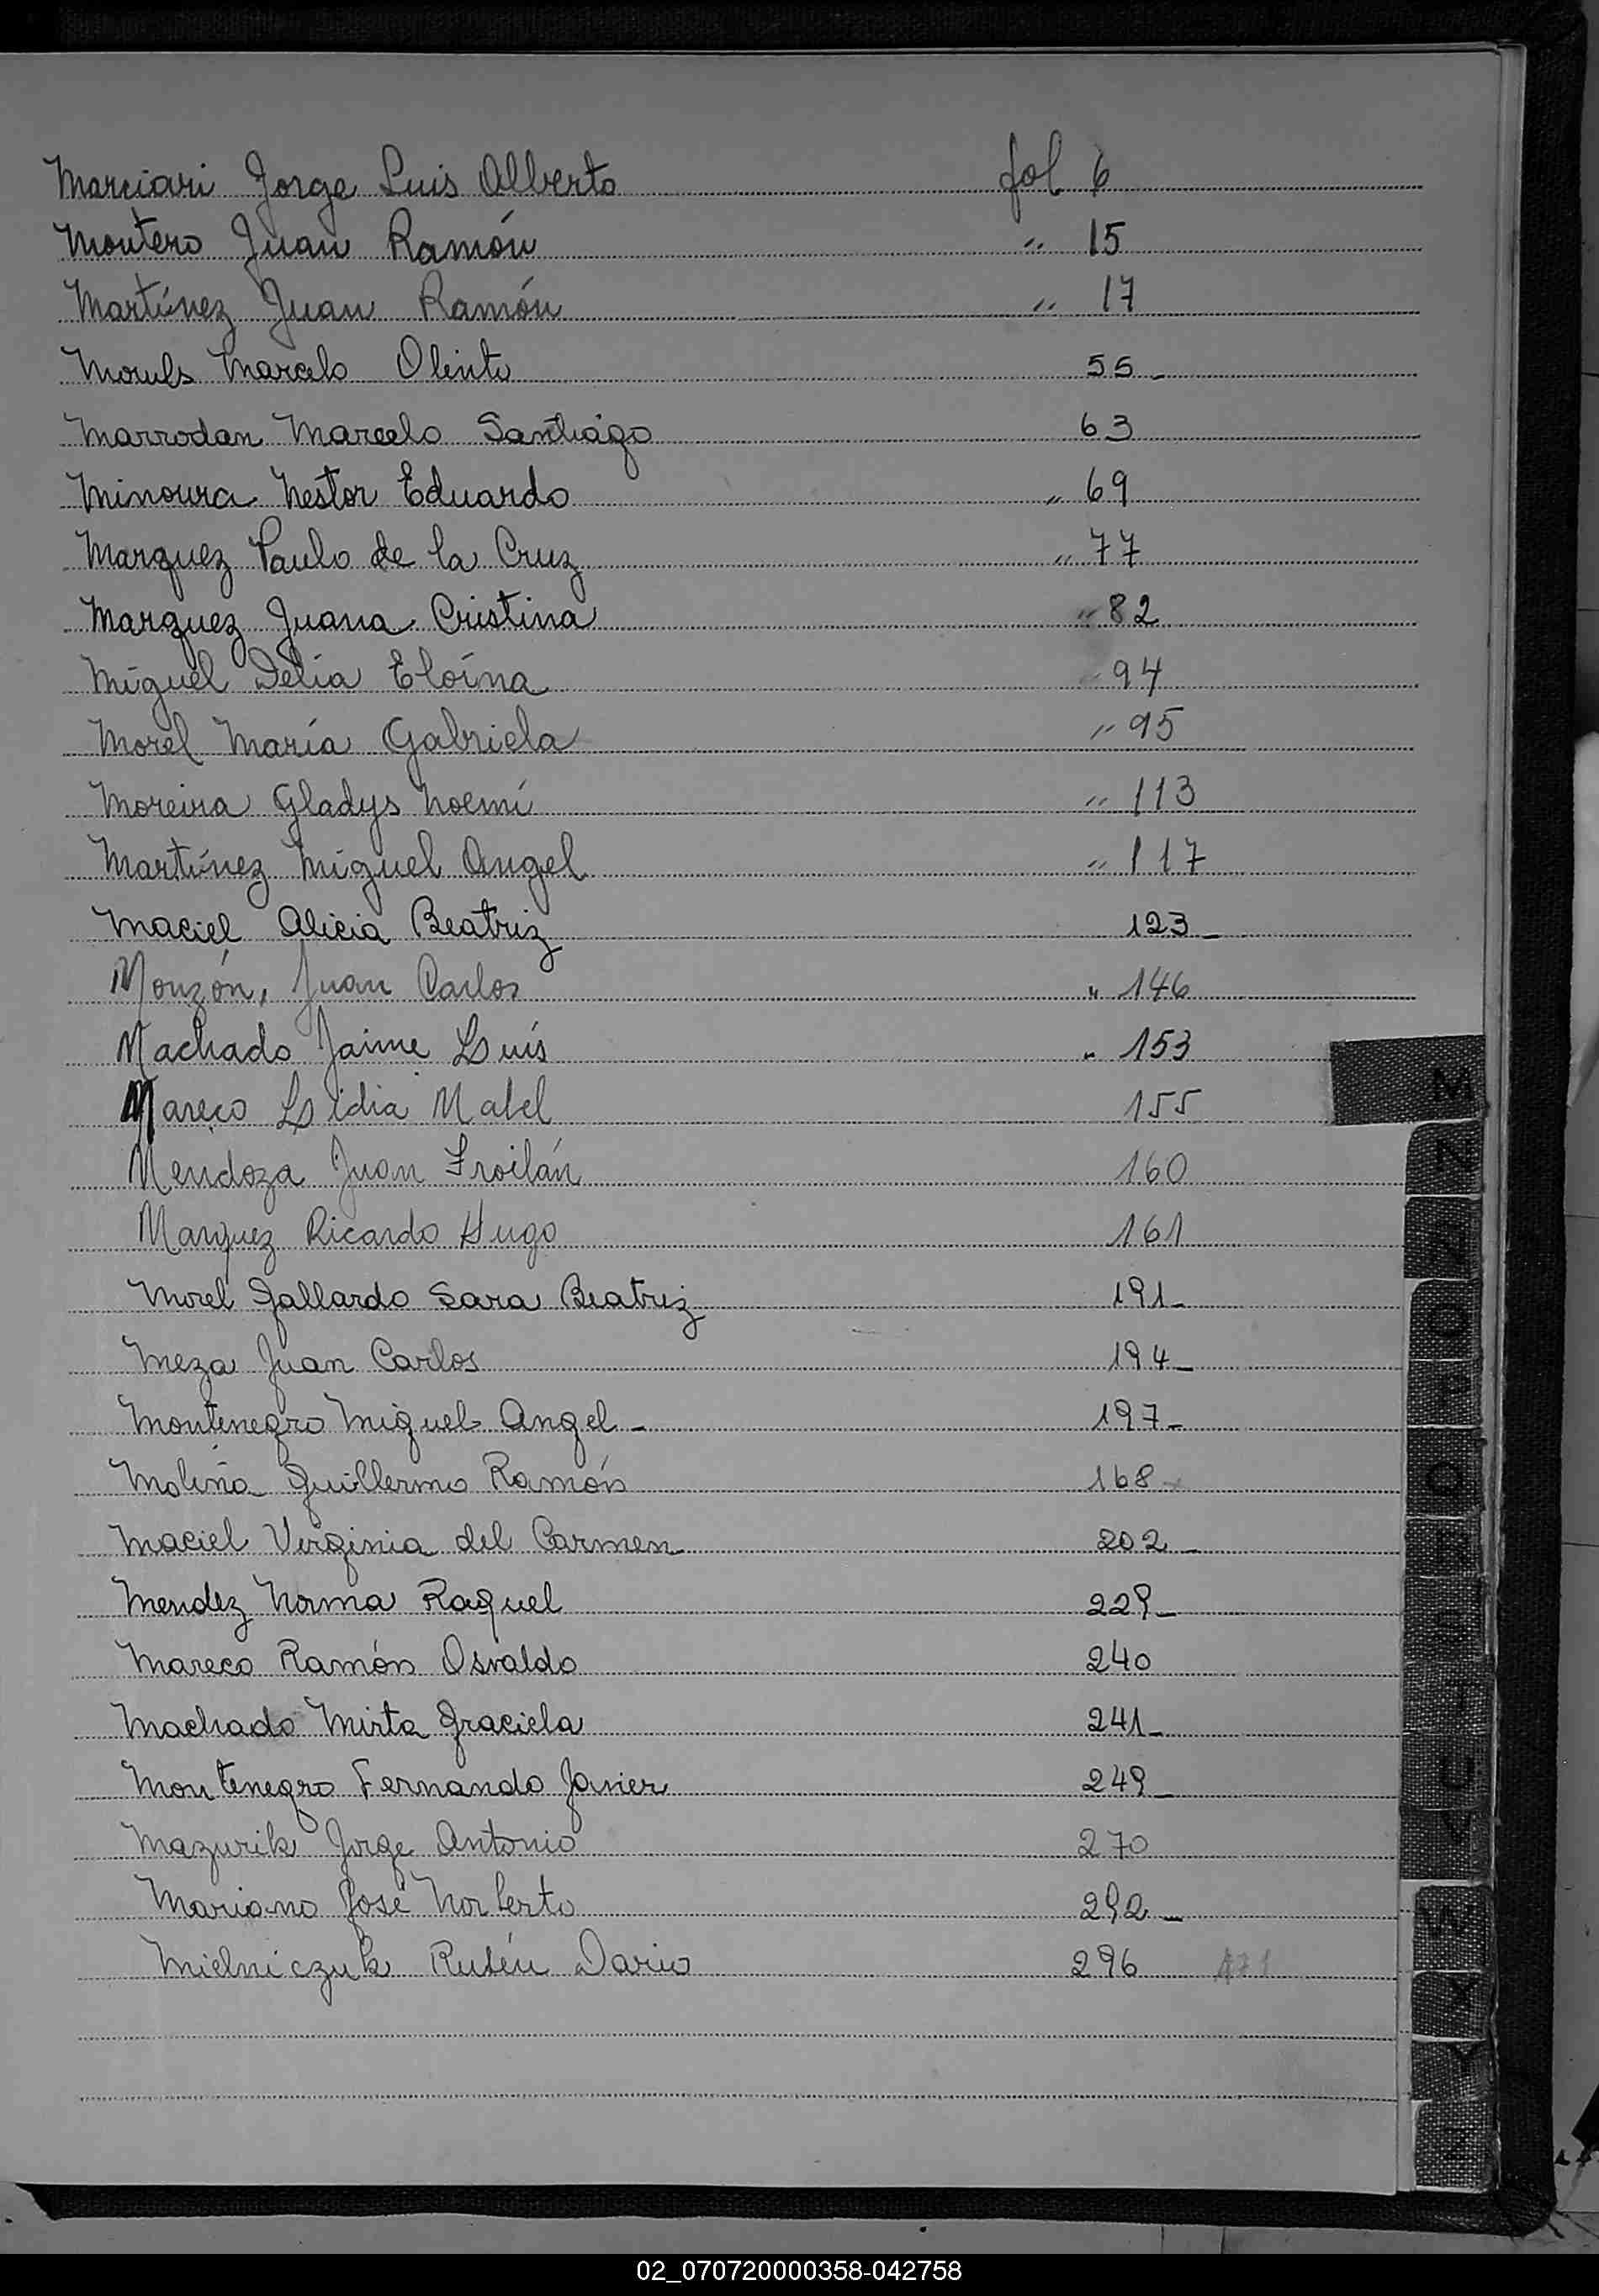 Marciari Jorge Luis Alberto fol 6
Montero Juan Ramón " 15
Martínez Juan Ramón " 17
Marcelo Olinto 55_
Marrodan Marcelo Santiago 63
Minoura Nestor Eduardo " 69
Marquez Paulo de la Cruz " 77
Marquez Juana Cristina " 82
Miguel Delia Eloína " 94
Morel María Gabriela " 95
Moreira Gladys Noemí " 113
Martínez Miguel Angel " 117
Maciel Alicia Beatriz 123_
Monzón, Juan Carlos " 146
Machado Jaime Luís " 153
Mareco Lidia Mabel 155
Mendoza Juan Froilán 160
Marquez Ricardo Hugo 161
Morel Gallardo Sara Beatriz 191_
Meza Juan Carlos 194_
Montenegro Miguel Angel _ 197_
Molina Guillermo Ramón 168
Maciel Virginia del Carmen 202_
Mendez Norma Raquel 229_
Mareco Ramón Osvaldo 240
Machado Mirta Graciela 241_
Montenegro Fernando Javier 249_
Mazurik Jorge Antonio 270
Mariano José Norberto 292_
Mielniczuk Rubén Dario 296 171
M
N
Ñ
O
P
Q
R
S
T
U
V
W
X
Y
Z
02_070720000358-042758